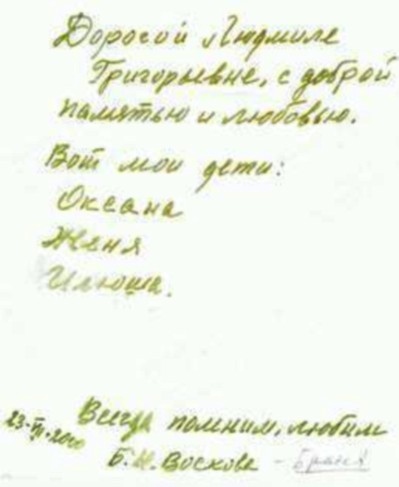 Дорогой Людмиле
Григорьевне, с доброй
памятью и любовью.
Вот мои дети:
Оксана
Женя
Илюша.
Всегда помним, любим
Б. Н. Воскова